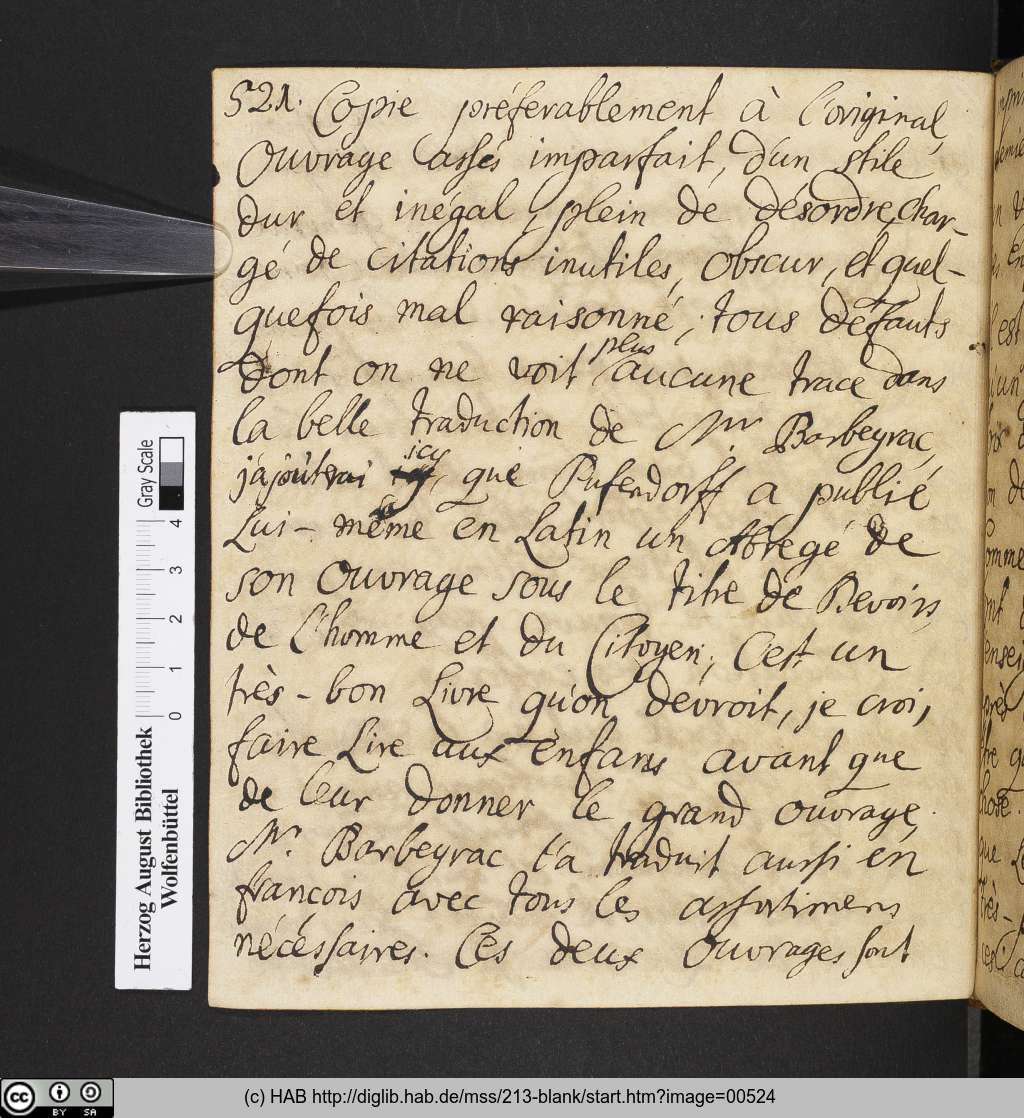 521. Copie préferablement à l'original,
Ouvrage assés imparfait, d'un stile
dur et inégal, plein de désordre, char-
gé de citations inutiles, obscur, et quel-
quefois mal raisonné; tous défauts
dont on ne voit plus aucune trace dans
la belle traduction de Mr. Barbeyrac,
j'ajoûterai icy que Pufendorff a publié
Lui-même en Latin un Abregé de
son Ouvrage sous le titre de Devoirs
de L'homme et du Citoyen; C'est un
très-bon Livre qu'on devroit, je croi,
faire Lire aux enfans avant que
de leur donner le grand ouvrage.
Mr. Barbeyrac l'a traduit aussi en
françois avec tous les assortimens
nécéssaires. Ces deux Ouvrages sont
Herzog August Bibliothek
Wolfenbüttel
0 1 2 3 4
Gray Scale
cc BY SA
(c) HAB http://diglib.hab.de/mss/213-blank/start.htm?image=00524